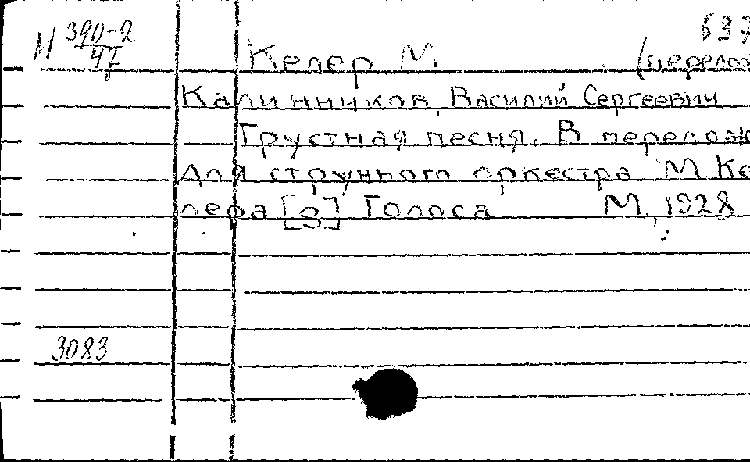 М 390-2 637
47 Келер М. (перелож
Калинников, Василий Сергеевич
Грустная песня. В перелож
для струнного оркестра М. Ке
лера [9] Голоса М., 1928
3083